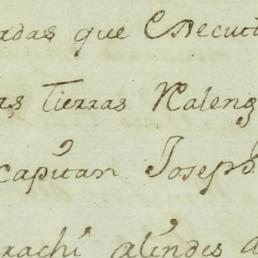 adas que Executi
as Tierras Raleng
capitan Joseph
rachi alindes a